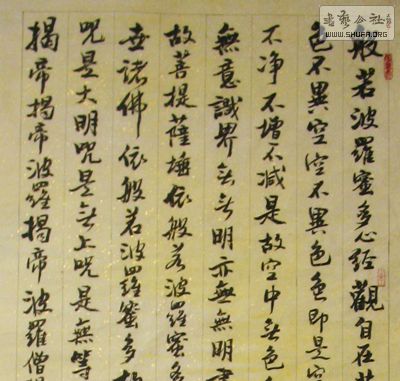 般若波羅蜜多心經觀自在菩
色不異空空不異色色即是空
不净不增不减是故空中無色
無意識界無無明亦無無明盡
故菩提薩埵依般若波羅蜜多
世諸佛依般若波羅蜜多故
咒是大明咒是無上咒是無等
揭帝揭帝波羅揭帝波羅僧揭
書藝公社
WWW.SHUFA.ORG